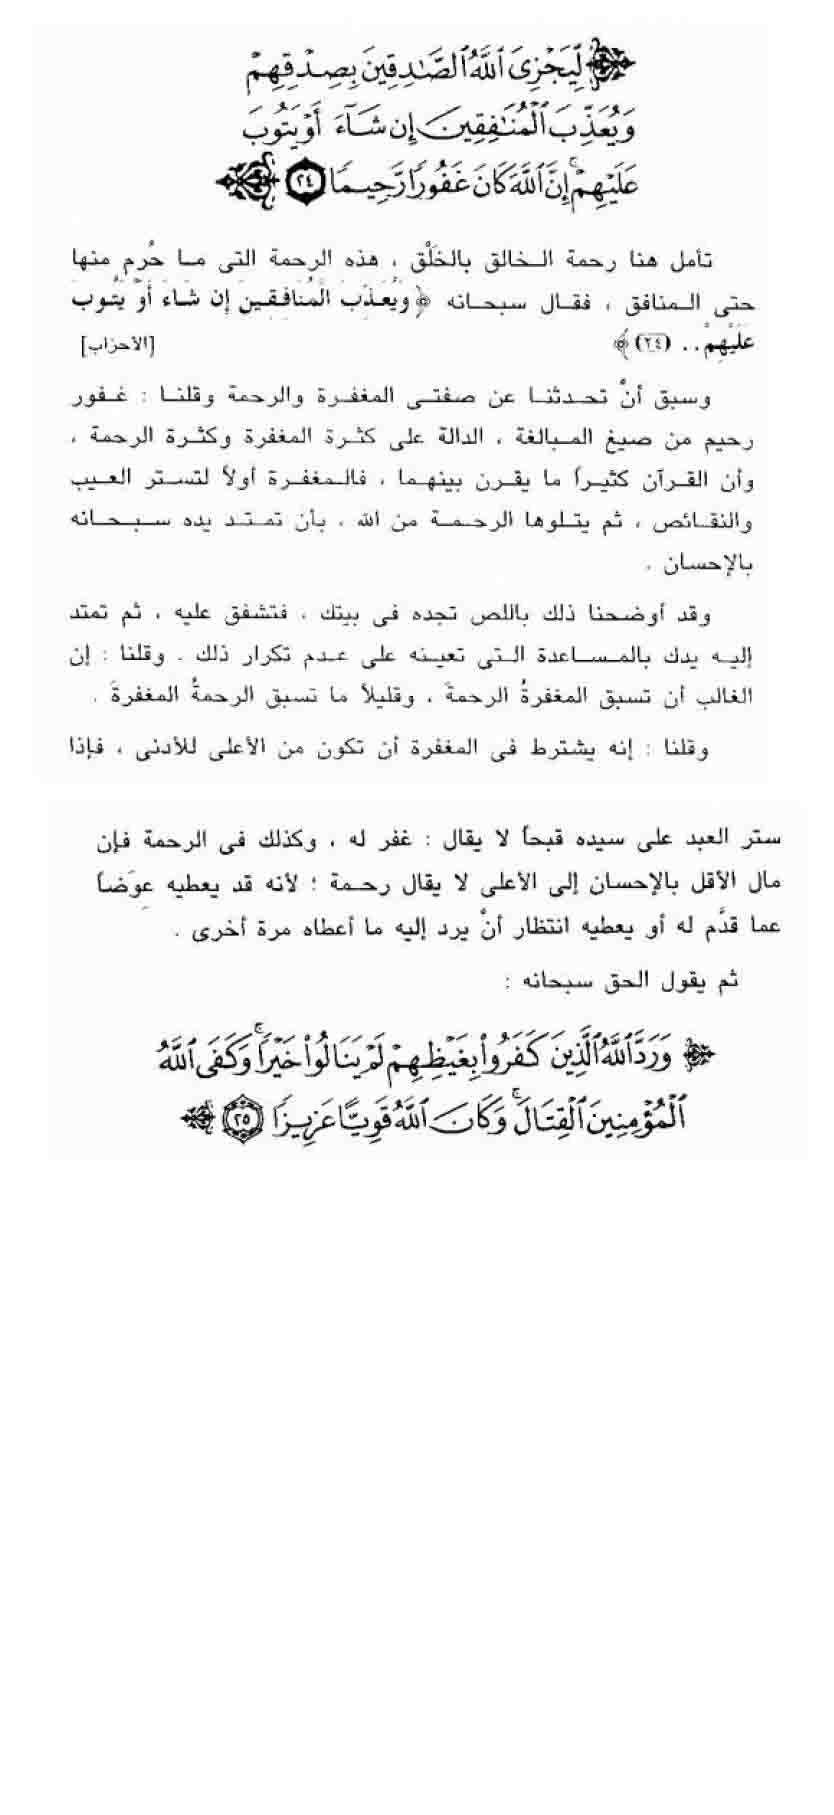 لِّيَجْزِىَ ٱللَّهُ ٱلصَّٰدِقِينَ بِصِدْقِهِمْ
وَيُعَذِّبَ ٱلْمُنَٰفِقِينَ إِن شَآءَ أَوْ يَتُوبَ
عَلَيْهِمْ ۚ إِنَّ ٱللَّهَ كَانَ غَفُورًا رَّحِيمًا ٢٤
تأمل هنا رحمة الخالق بالخَلْق ، هذه الرحمة التى ما حُرِم منها
حتى المنافق ، فقال سبحانه ﴿ وَيُعَذِّبَ الْمُنَافِقِينَ إِن شَاءَ أَوْ يَتُوبَ
عَلَيْهِمْ .. (٢٤) ﴾ [الأحزاب]
وسبق أنْ تحدثنا عن صفتى المغفرة والرحمة وقلنا : غفور
رحيم من صيغ المبالغة ، الدالة على كثرة المغفرة وكثرة الرحمة ،
وأن القرآن كثيراً ما يقرن بينهما ، فالمغفرة أولاً لتستر العيب
والنقائص ، ثم يتلوها الرحمة من الله ، بأن تمتد يده سبحانه
بالإحسان .
وقد أوضحنا ذلك باللص تجده فى بيتك ، فتشفق عليه ، ثم تمتد
إليه يدك بالمساعدة التى تعينه على عدم تكرار ذلك . وقلنا : إن
الغالب أن تسبق المغفرةُ الرحمةَ ، وقليلاً ما تسبق الرحمةُ المغفرةَ .
وقلنا : إنه يشترط فى المغفرة أن تكون من الأعلى للأدنى ، فإذا
ستر العبد على سيده قبحاً لا يقال : غفر له ، وكذلك فى الرحمة فإن
مال الأقل بالإحسان إلى الأعلى لا يقال رحمة ؛ لأنه قد يعطيه عِوَضاً
عما قدَّم له أو يعطيه انتظار أنْ يرد إليه ما أعطاه مرة أخرى .
ثم يقول الحق سبحانه :
وَرَدَّ ٱللَّهُ ٱلَّذِينَ كَفَرُوا۟ بِغَيْظِهِمْ لَمْ يَنَالُوا۟ خَيْرًا ۚ وَكَفَى ٱللَّهُ
ٱلْمُؤْمِنِينَ ٱلْقِتَالَ ۚ وَكَانَ ٱللَّهُ قَوِيًّا عَزِيزًا ٢٥